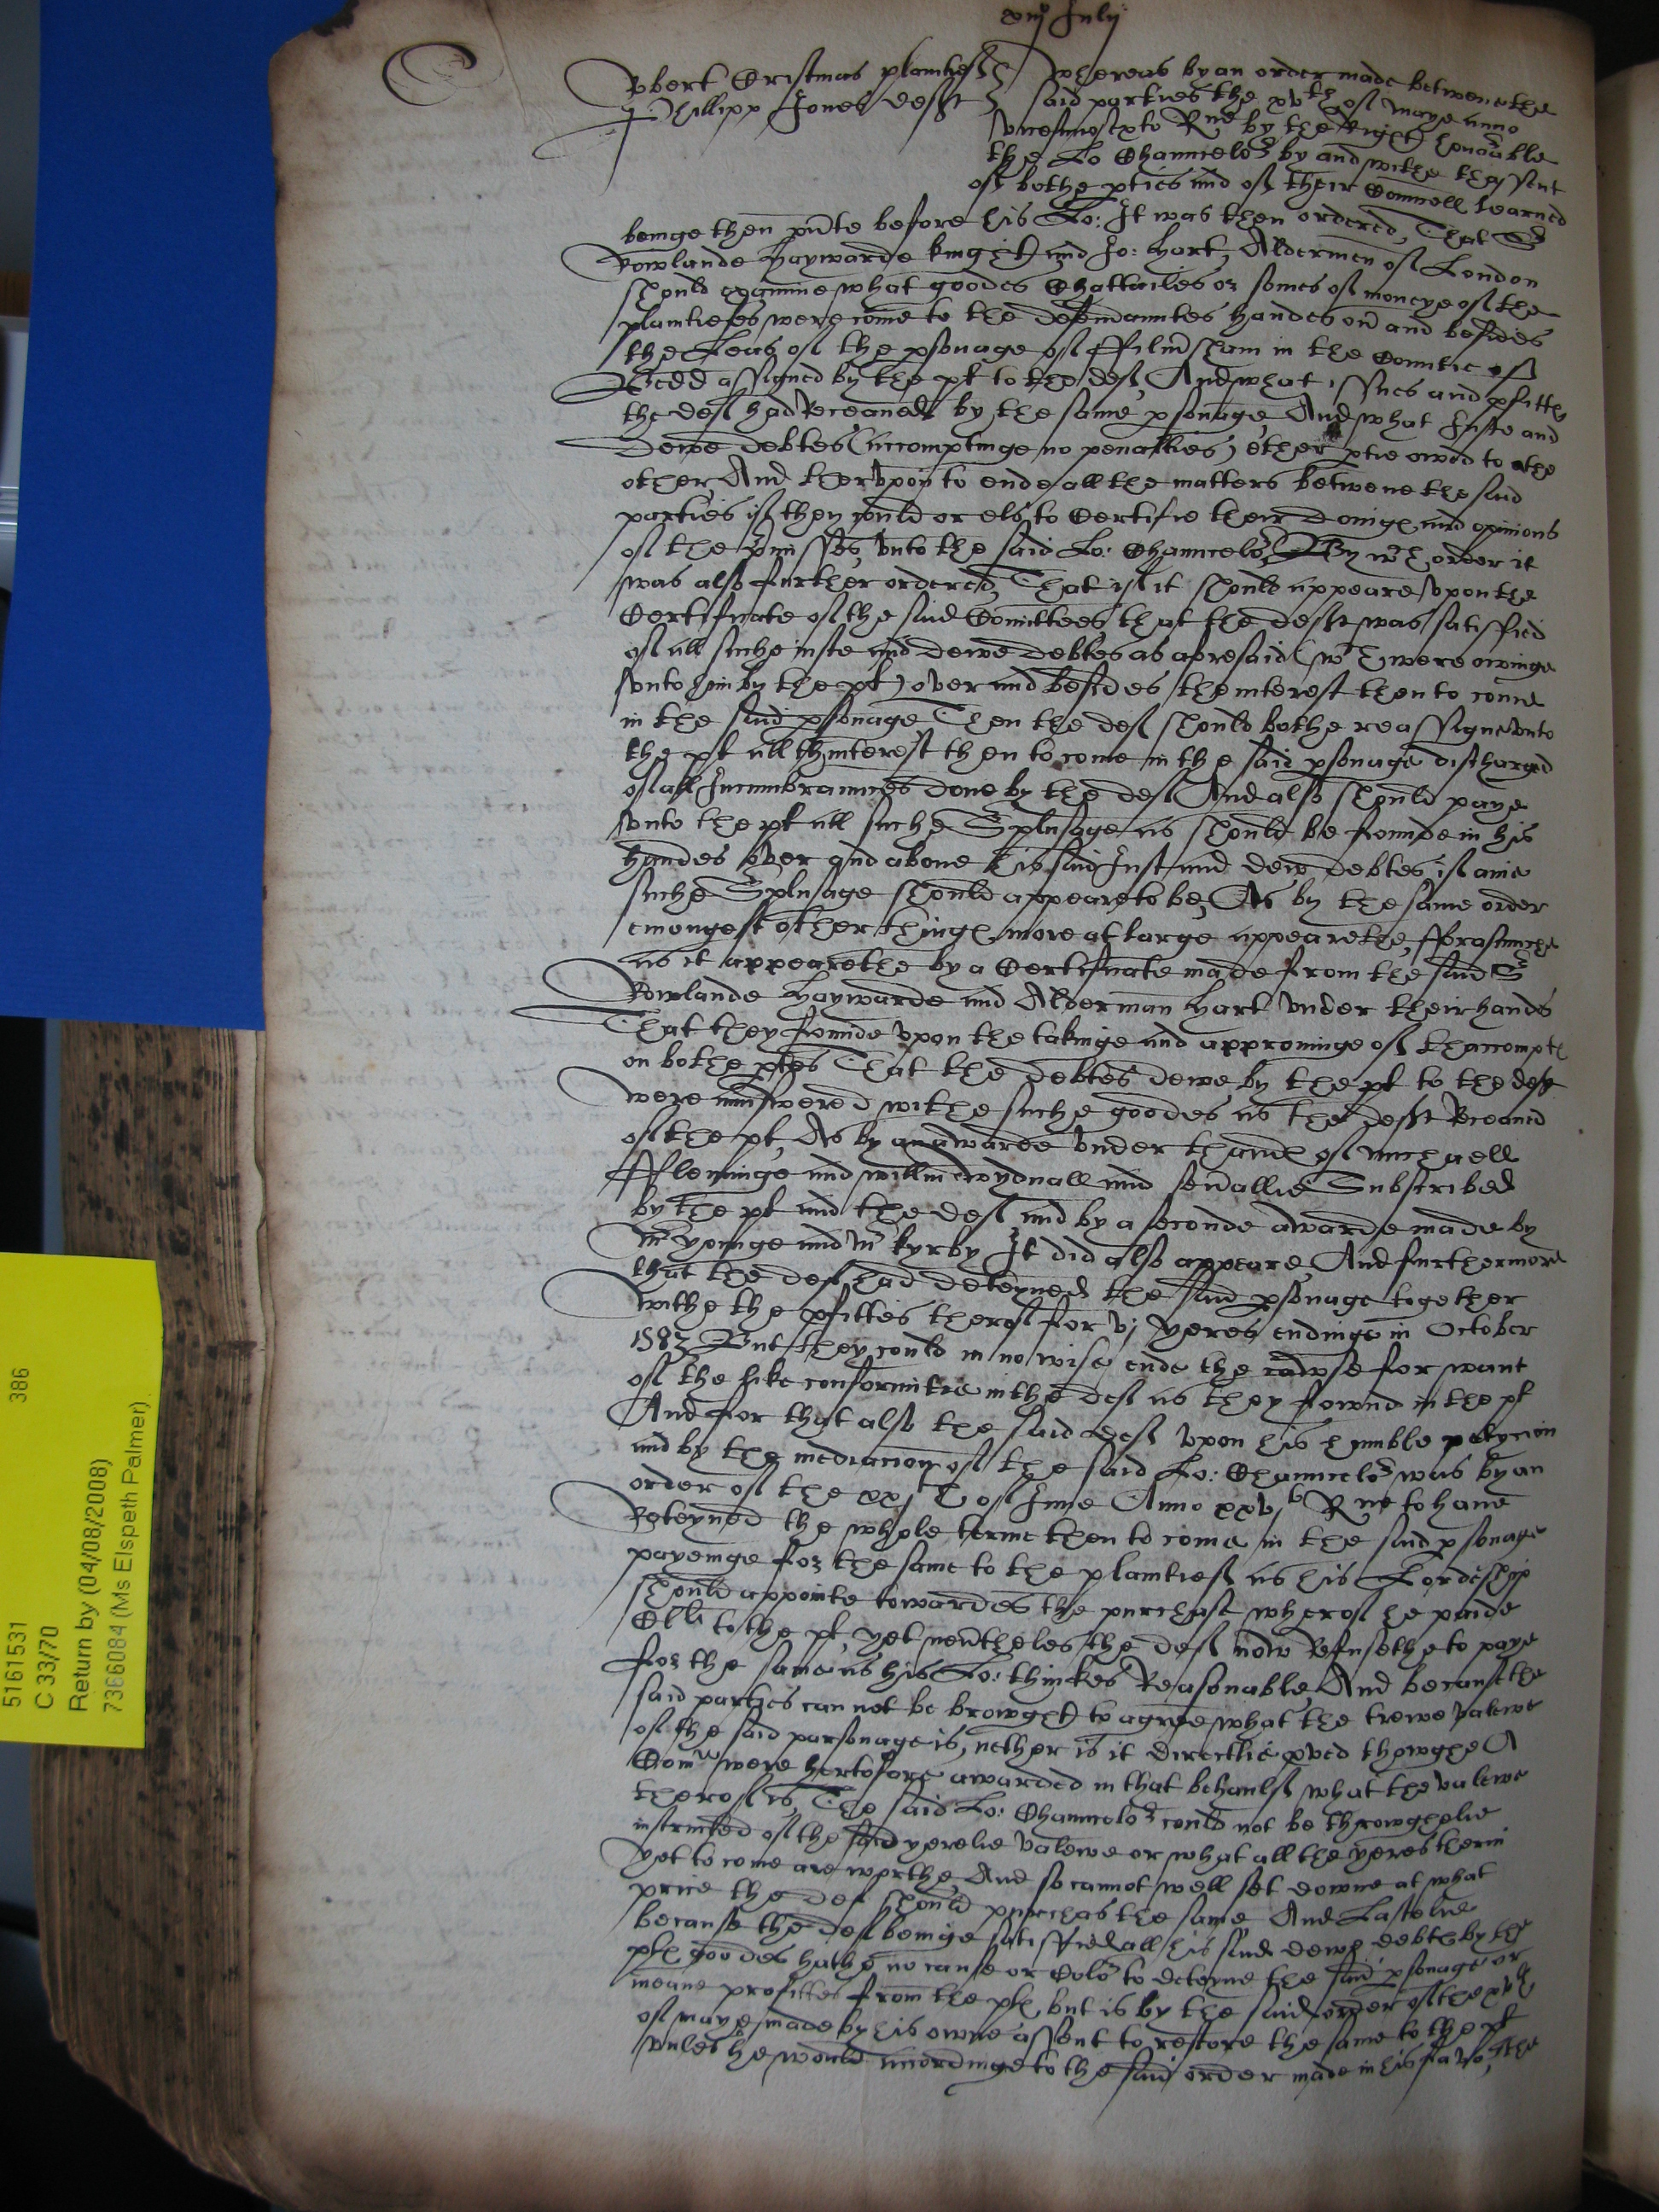 xiij Julij
Robert Cristmas plaintief
Phillipp Jones defft
Whereas by an order made betwene the
said parties the xvth of Maye anno
vicesimosexto Rne by the Right honorable
the Lo Chauncelor by and withe thassent
of bothe pties and of their Counsell learned
beinge then pnte before his Lo: It was then ordered, That Sr
Rowlande Haywarde knight and Jo: Hart, Aldermen of London
should examine what goodes Chattailes or somes of moneye of the
plaintiefes were come to the defendauntes handes ovr and besides
the Leas of the psonage of in the Countie of
Bedd assigned by the pt to the def, And what issues and pfitts
the def had Receaved by the same psonage, And what Juste and
Dewe debtes (accomptinge no penalties) ether ptie owed to the
other And thervpon to ende all the matters betwene the said
parties if they could or els to Certifie their doinges and opinions
of the pmisses vnto the said Lo: Chauncelor, By wch order it
was also further ordered, That if it should appeare vpon the
Certificate of the said Comittees that the defft was satisfied
of all suche iuste and dewe debtes as aforesaid (wch were owinge
vnto him by the pt) over and besides the interest then to come
in the said psonage Then the def should bothe reassigne vnto
the pt all thinterest then to come in the said psonage discharged
of all Incumbraunces done by the def And also should paye
vnto the pt all suche Splusage as should be founde in his
handes over and aboue his said Just and dew debtes if anie
suche Splusage should appeare to be, As by the same order
emongest other thinges more at large appearethe, fforasmuche
as it appearethe by a Certificate made from the said Sr
Rowlande Haywarde and Alderman Hart vnder their hands
That they founde vpon the takinge and approuinge of thaccompts
on bothe ptes That the debtes dewe by the pt to the deft
were aunswered withe suche goodes as the defft Receaued
of the pt, As by an awarde vnder thandes of Michaell
fflemynge and Willm Wydnall and seuallie Subscribed
by the pt and the def and by a seconde awarde made by
Mr Younge and Mr Kyrby It did also appeare, And furthermore
that the def had deteyned the said psonage together
withe the pfittes therof for vj yeres endinge in October
1583 But they could in no wise ende the cawse for want
of the like conformitie in the def as they fownd in the pt
And for that also the said def vpon his humble petycion
and by the mediacion of the said Lo: Chauncelor was by an
order of the xxjth of June Anno xxvjto Rne to haue
Reteyned the whole terme then to come in the said psonage
payeinge for the same to the plaintief as his Lordeship
should appointe towardes the purchase wherof he paide
Clli to the pt, yet neuertheles the def now Refusethe to paye
for the same as his Lo: thinckes Reasonable, And because the
said parties can not be browght to agree what the trewe valewe
of the said parsonage is, nether is it directlie pved thowghe A
Comn were hertofore awarded in that behaulf what the valewe
therof is, The said Lo: Chauncelor could not be throwghelie
instructed of the said yerelie valewe or what all the yeres therin
yet to come are worthe, And so cannot well set downe at what
price the def should purchas the same And Lastelie
because the def beinge satisfied all his said dewe debts by the
pts goodes hathe no cause or Color to deteyne the said psonage or
meane profittes from the pts, but is by the said order of the xvth
of maye made by his owne assent to restore the same to the pt
vnles he would accordinge to the said order made in his favor, the
5161531 386
C 33/70
Return by (04/08/2008)
7366084 (Ms Elspeth Palmer)